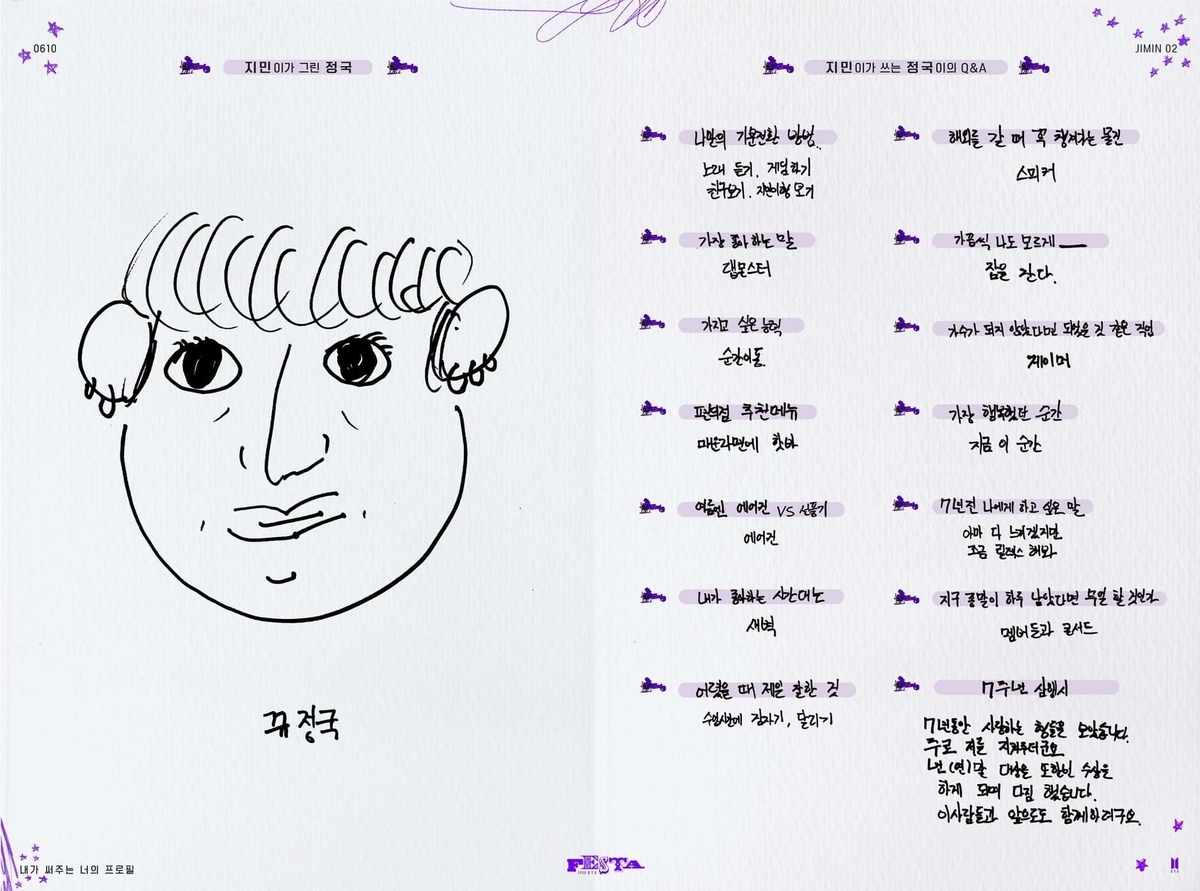 0610
지민이가 그린 정국
뀨 정국
내가 써주는 너의 프로필
JIMIN 02
지민이가 쓰는 정국이의 Q&A
나만의 기분전환 방법..
노래 듣기, 게임하기
친구보기, 지민이형 보기
가장 좋아하는 말
랩몬스터
가지고 싶은 능력
순간이동.
편의점 추천메뉴
매운라면에 핫바
여름엔 에어컨 VS 선풍기
에어컨
내가 좋아하는 시간대는
새벽
어렸을 때 제일 잘한 것
수업시간에 잠자기, 달리기
해외를 갈 때 꼭 챙겨가는 물건
스피커
가끔씩 나도 모르게
잠을 잔다.
가수가 되지 않았다면 되었을 것 같은 직업
게이머
가장 행복했던 순간
지금 이 순간
7년전 나에게 하고 싶은 말
아마 다 느끼겠지만
조금 릴렉스 해봐
지구 종말이 하루 남았다면 무얼 할 것인가
멤버들과 콘서트
7주년 삼행시
7년동안 사랑하는 형들을 모았습니다.
주로 저를 지켜주더군요
년(연)말 대상을 또한번 수상을
하게 되며 다짐 했습니다.
이사람들과 앞으로도 함께하더구요.
FESTA
2020 BTS
BTS